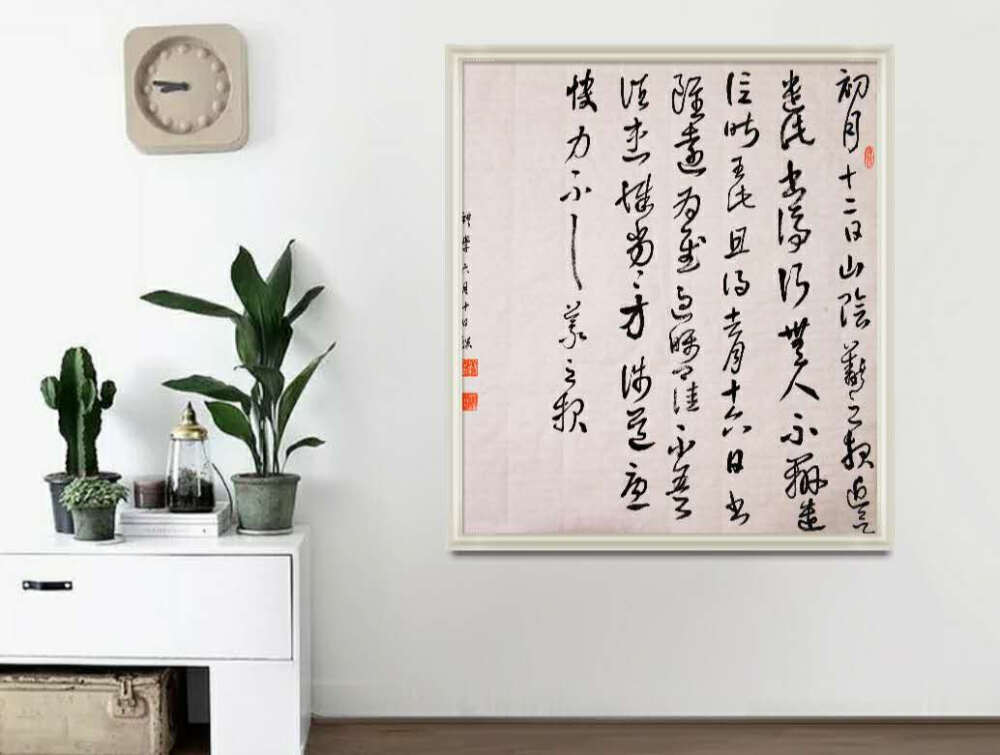 初月十二日山陰羲之報近欲
遣此書停行無人不辦遣
信昨至此且得去月十六日書
雖遠為慰過囑卿佳不吾
諸患殊劣〻方涉道憂
悴力不具羲之報
六月十日